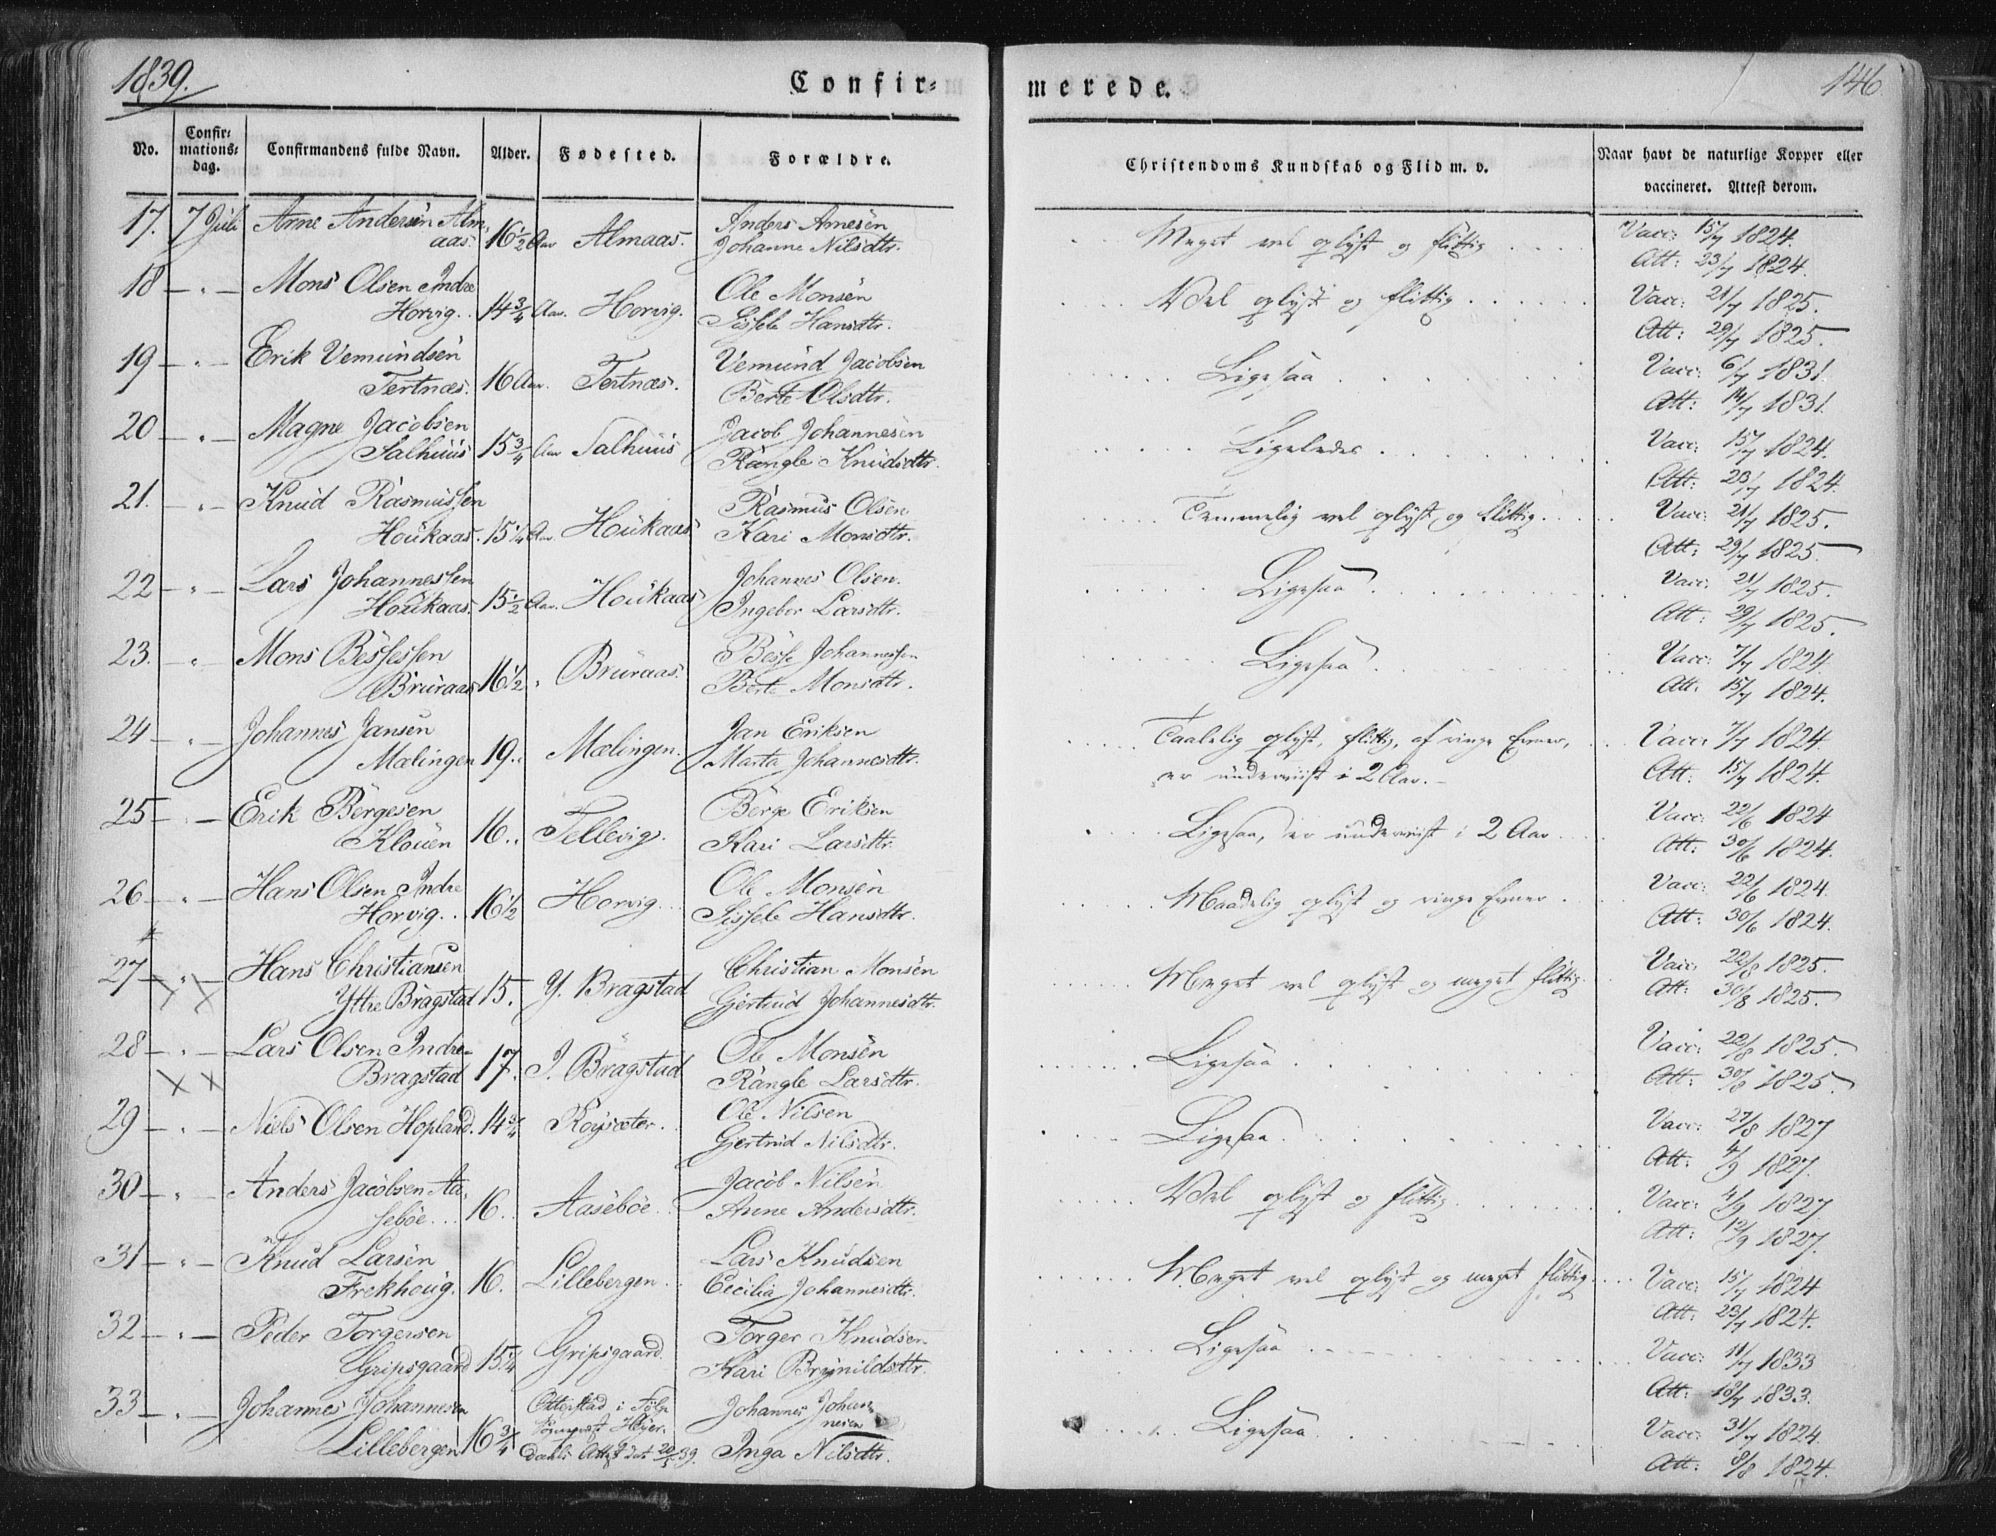 1839.
Confir=
merede.
146.
No.
Confir=
mations=
dag.
Confirmandens fulde Navn.
Alder.
Fødested.
Forældre.
Christendoms Kundskab og Flid m. v.
Naar havt de naturlige Kopper eller
vaccineret. Attest derom.
17. 7 Juli Arne Andersen Alm- Anders Arnesen Vacc: 15/7 1824.
aas. 16½ Aar Almaas. Johanne Nilsdtr. Meget vel oplyst og flittig Att: 23/7 1824.
18 — " — Mons Olsen Indre Ole Monsen Vacc: 21/7 1825.
Horvig. 14¾ Aar. Horvig. Sissele Hansdtr. Vel oplyst og flittig Att: 29/7 1825.
19 — " — Erik Vemundsen Vemund Jacobsen Vacc: 6/7 1831
Tertnæs. 16 Aar. Tertnæs. Berte Olsdtr. Ligesaa Att: 14/7 1831.
20 — " — Magne Jacobsen Jacob Johannesen Vacc: 15/7 1824.
Salhuus 15¾ Aar Salhuus Rangle Knudsdtr. Ligeledes Att: 23/7 1824.
21. — " — Knud Rasmussen Rasmus Olsen Vacc: 21/7 1825.
Houkaas. 15¼ Aar. Houkaas. Kari Monsdtr. Temmelig vel oplyst og flittig. Att: 29/7 1825.
22 — " — Lars Johannessen Johannes Olsen. Vacc: 21/7 1825.
Houkaas. 15½ Aar. Houkaas Ingebor Larsdtr. Ligesaa Att: 29/7 1825.
23. — " Mons Bessessen Besse Johannessen Vacc: 7/7 1824.
Bruraas 16½. Bruraas. Berte Monsdtr. Ligesaa Att: 15/7 1824.
24 — " — Johannes Jansen Jan Eriksen Taalelig oplyst, flittig, af ringe Evner, Vacc: 7/7 1824
Mælingen 19.. Mælingen. Marta Johannesdtr. er underviist i 2 Aar. Att: 15/7 1824.
25 — " — Erik Børgesen Børge Eriksen Vacc: 22/6 1824
Klouen 16.. Tellevig. Kari Larsdtr. Ligesaa, er underviist i 2 Aar Att: 30/6 1824.
26 — " — Hans Olsen Indre Ole Monsen Vacc: 22/6 1824.
Horvig. 16½ Horvig. Sissele Hansdtr. Maadelig oplyst og ringe Evner. Att: 30/6 1824.
27 — " — Hans Christiansen Christian Monsen Vacc: 22/8 1825.
Yttre Bragstad 15. Y. Bragstad Gjertrud Johannesdtr. Meget vel oplyst og meget flittig Att: 30/8 1825.
28 — " — Lars Olsen Indre- Ole Monsen Vacc: 22/8 1825.
Bragstad 17. I. Bragstad Rangle Larsdtr. Ligesaa Att: 30/8 1825.
29 — " — Niels Olsen Hopland. 14¾ Roysæter. Ole Nilsen Vacc: 27/8 1827
Gjertrud Nilsdtr. Ligesaa Att: 4/9 1827.
30 — " — Anders Jacobsen Aa- Jacob Nilsen Vacc: 4/9 1827
seböe 16. Aaseböe. Anne Andersdtr. Vel oplyst og flittig Att: 12/9 1827.
31 — " — Knud Larsen Lars Knudsen Vacc: 15/7 1824
Frekhoug. 16. Lillebergen. Cecilia Johannesdtr. Meget vel oplyst og meget flittig Att: 23/7 1824.
32 — " — Peder Torgersen Torger Knudsen Vacc: 11/7 1833
Gripsgaard 15¼ Gripsgaard. Kari Brynildsdtr. Ligesaa Att: 18/7 1833.
33 — " — Johannes Johannesen Otterstad i Johannes Johan- Vacc: 31/7 1824.
nesen
Lillebergen 16¾ 39. Inga Nilsdtr. Ligesaa Att: 8/8 1824.